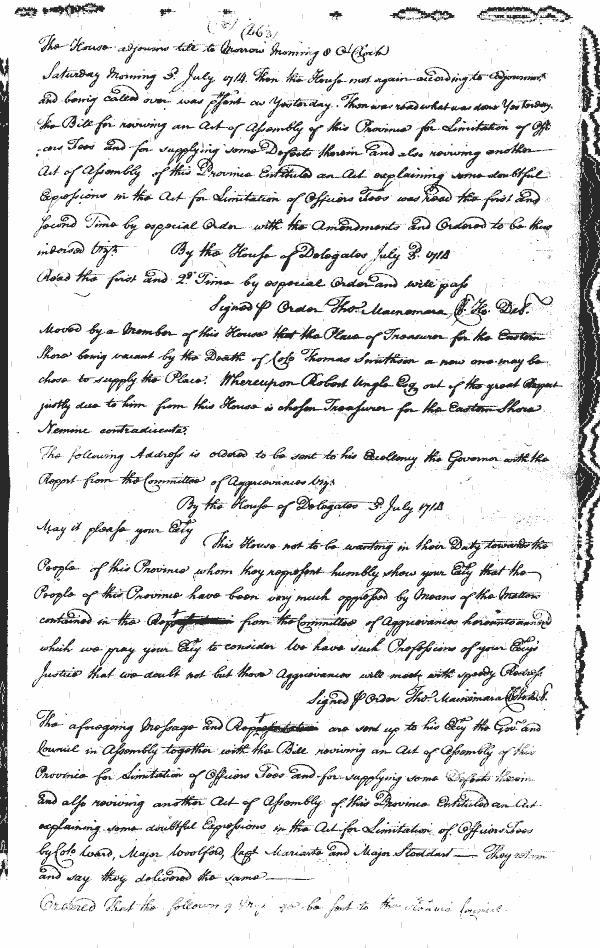 (463)
The House adjourns till to Morrow Morning 8 O Clock
Saturday Morning 3d. July 1714. Then the House met again according to Adjournmt.
and being called over was p'sent as Yesterday. Then was read what was done Yesterday.
the Bill for reviving an Act of Assembly of this Province for Limitation of Offi
cers Fees and for supplying some Defects therein and also reviving another
Act of Assembly of this Province Entituled an Act explaining some doubtful
Expressions in the Act for Limitation of Officers Fees was Read the first and
second Time by especial Order with the Amendments and Ordered to be thus
indorsed Vizt.
By the House of Delegates July 3d. 1714
Read the first and 2d. Time by especial Order and will pass
Signed p Order Tho. Macnemara Cl. Ho. Del.
Moved by a Member of this House that the Place of Treasurer for the Eastern
Shore being vacant by the Death of Colo Thomas Smithson a new one may be
chose to supply the Place. Whereupon Robert Ungle Esq out of the great Respect
justly due to him from this House is chosen Treasurer for the Eastern Shore
Nemine contradicente.
The following Address is ordered to be sent to his Excellency the Governor with the
Report from the Committee of Aggrievances Vizt.
By the House of Delegates 3d. July 1714
May it please your Exly
This House not to be wanting in their Duty towards the
People of this Province whom they represent humbly show your Exly that the
People of this Province have been very much oppressed by Means of the Matters
contained in the Report from the Committee of Aggrievances hereunto annexed
which we pray your Exly to consider We have such Professions of your Exlys
Justice that we doubt not but those Aggrievances will meet with speedy Redress.
Signed p Order Tho. Macnemara
The aforegoing Message and Report are sent up to his Exly the Govr. and
Council in Assembly together with the Bill reviving an Act of Assembly of this
Province for Limitation of Officers Fees and for supplying some Defects therein
and also reviving another Act of Assembly of this Province Entituled an Act
explaining some doubtful Expressions in the Act for Limitation of Officers Fees
by Colo Ward, Major Woolford, Capt Mariarte and Major Stoddart They return
and say they delivered the same
Ordered That the following be sent to the Council.